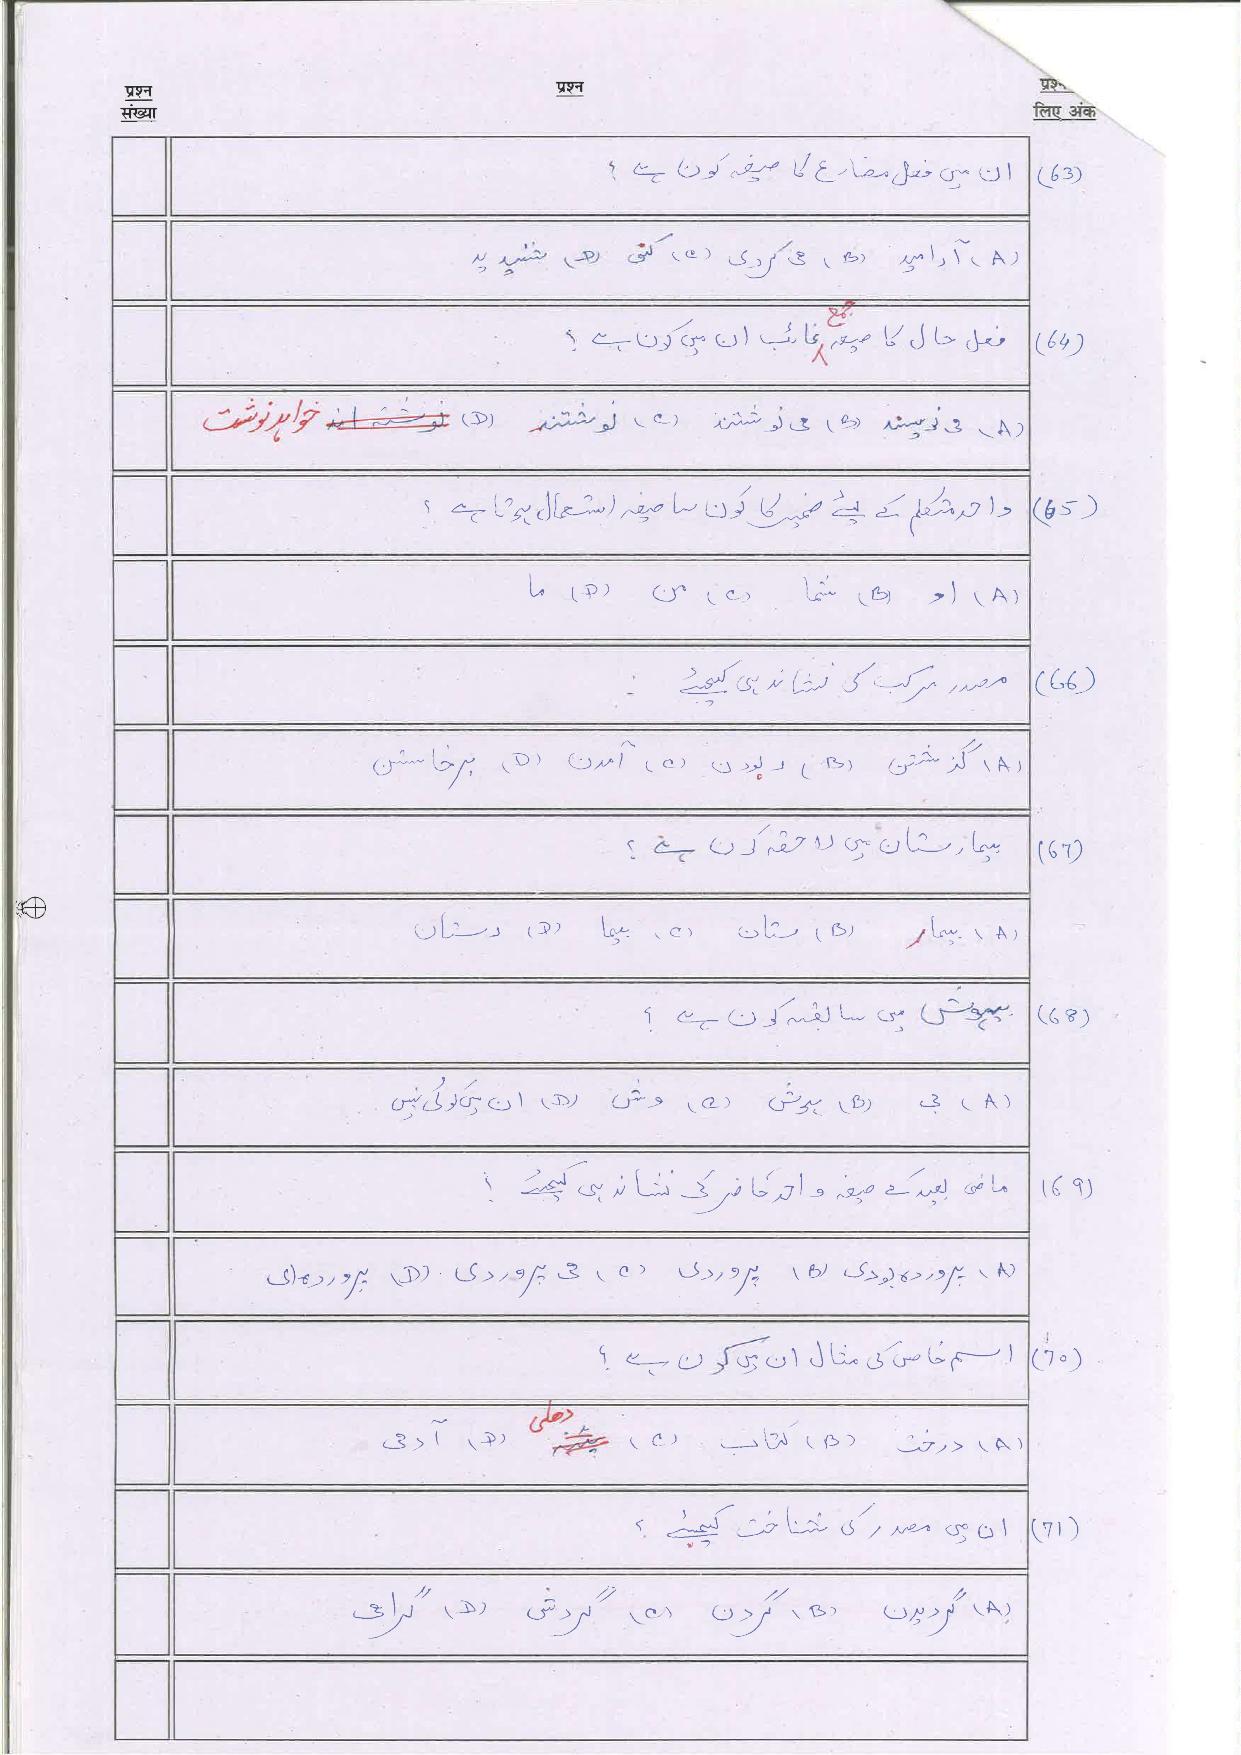 प्रश्न संख्या
प्रश्न
लिए अंक
(63) ان میں فعل مضارع کا صیغہ کون ہے ؟
(A) آرامید (B) می کردی (C) کنی (D)
(64) فعل حال کا صیغہ جمع غائب ان میں کون ہے ؟
(A) می نویسند (B) می نوشتند (C) نوشتند (D) نوشتہ اند خواہد نوشت
(65) واحد متکلم کے لیے ضمیر کا کون سا صیغہ استعمال ہوتا ہے ؟
(A) او (B) شما (C) من (D) ما
(66) مصدر مرکب کی نشاندہی کیجیے :
(A) گذشتن (B) ربودن (C) آمدن (D) برخاستن
(67) بیمارستان میں لاحقہ کون ہے ؟
(A) بیمار (B) ستان (C) بیما (D) رستان
(68) بیہوش میں سابقہ کون ہے ؟
(A) بی (B) ہوش (C) وش (D) ان میں کوئی نہیں
(69) ماضی بعید کے صیغہ واحد حاضر کی نشاندہی کیجیے ؟
(A) پروردہ بودی (B) پروردی (C) می پروردی (D) پروردہ ای
(70) اسم خاص کی مثال ان میں کون ہے ؟
(A) درخت (B) کتاب (C) دھلی (D) آدمی
(71) ان میں مصدر کی شناخت کیجیے ؟
(A) گردیدن (B) گردن (C) گردش (D) گرامی